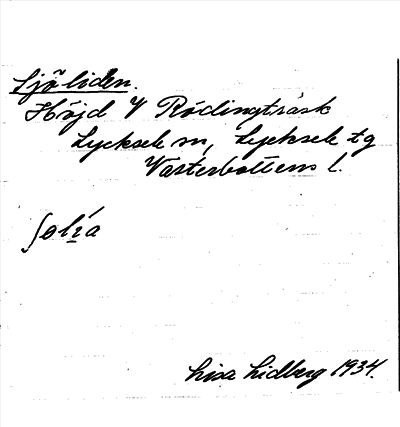 Sjöliden.
Höjd V Rödingträsk
Lycksele sn, Lycksele tg
Västerbottens l.
Lisa Lidberg 1934.